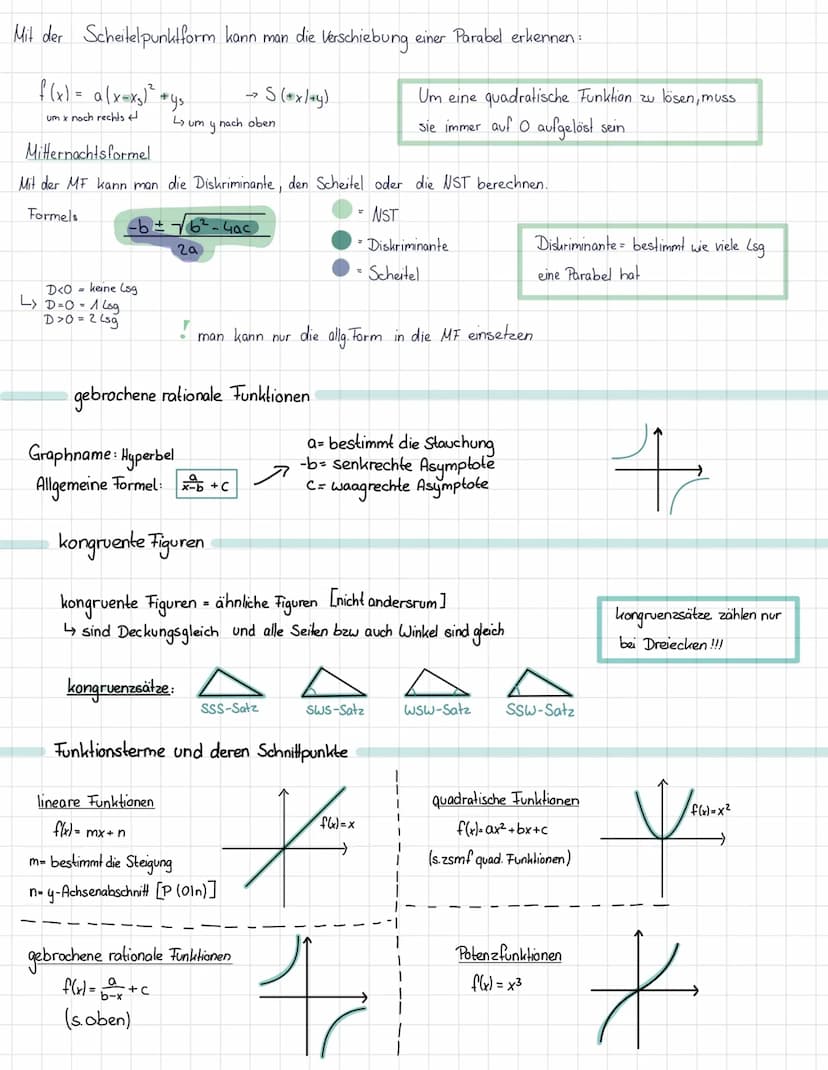 Mit der Scheitelpunktform kann man die Verschiebung einer Parabel erkennen:
f(x) = a(x-xs)² + ys → S(+x/+y)
um x nach rechts ↵ ↳ um y nach oben
Um eine quadratische Funktion zu lösen, muss
sie immer auf 0 aufgelöst sein
Mitternachtsformel
Mit der MF kann man die Diskriminante, den Scheitel oder die NST berechnen.
Formel:
-b ± √b² - 4ac
2a
= NST
= Diskriminante
= Scheitel
Diskriminante = bestimmt wie viele Lsg
eine Parabel hat
D<0 = keine Lsg
↳ D=0 = 1 Lsg
D>0 = 2 Lsg
! man kann nur die allg. Form in die MF einsetzen
gebrochene rationale Funktionen
Graphname: Hyperbel
Allgemeine Formel: a/x-b + c
a = bestimmt die Stauchung
-b = senkrechte Asymptote
c = waagrechte Asymptote
kongruente Figuren
kongruente Figuren = ähnliche Figuren [nicht andersrum]
↳ sind Deckungsgleich und alle Seiten bzw auch Winkel sind gleich
kongruenzsätze zählen nur
bei Dreiecken!!!
kongruenzsätze:
SSS-Satz SWS-Satz WSW-Satz SSW-Satz
Funktionsterme und deren Schnittpunkte
lineare Funktionen
f(x) = mx + n
m = bestimmt die Steigung
n = y-Achsenabschnitt [P(0|n)]
f(x)=x
quadratische Funktionen
f(x) = ax² + bx + c
(s. zsmf quad. Funktionen)
f(x)=x²
gebrochene rationale Funktionen
f(x) = a/b-x + c
(s. oben)
Potenzfunktionen
f(x) = x³